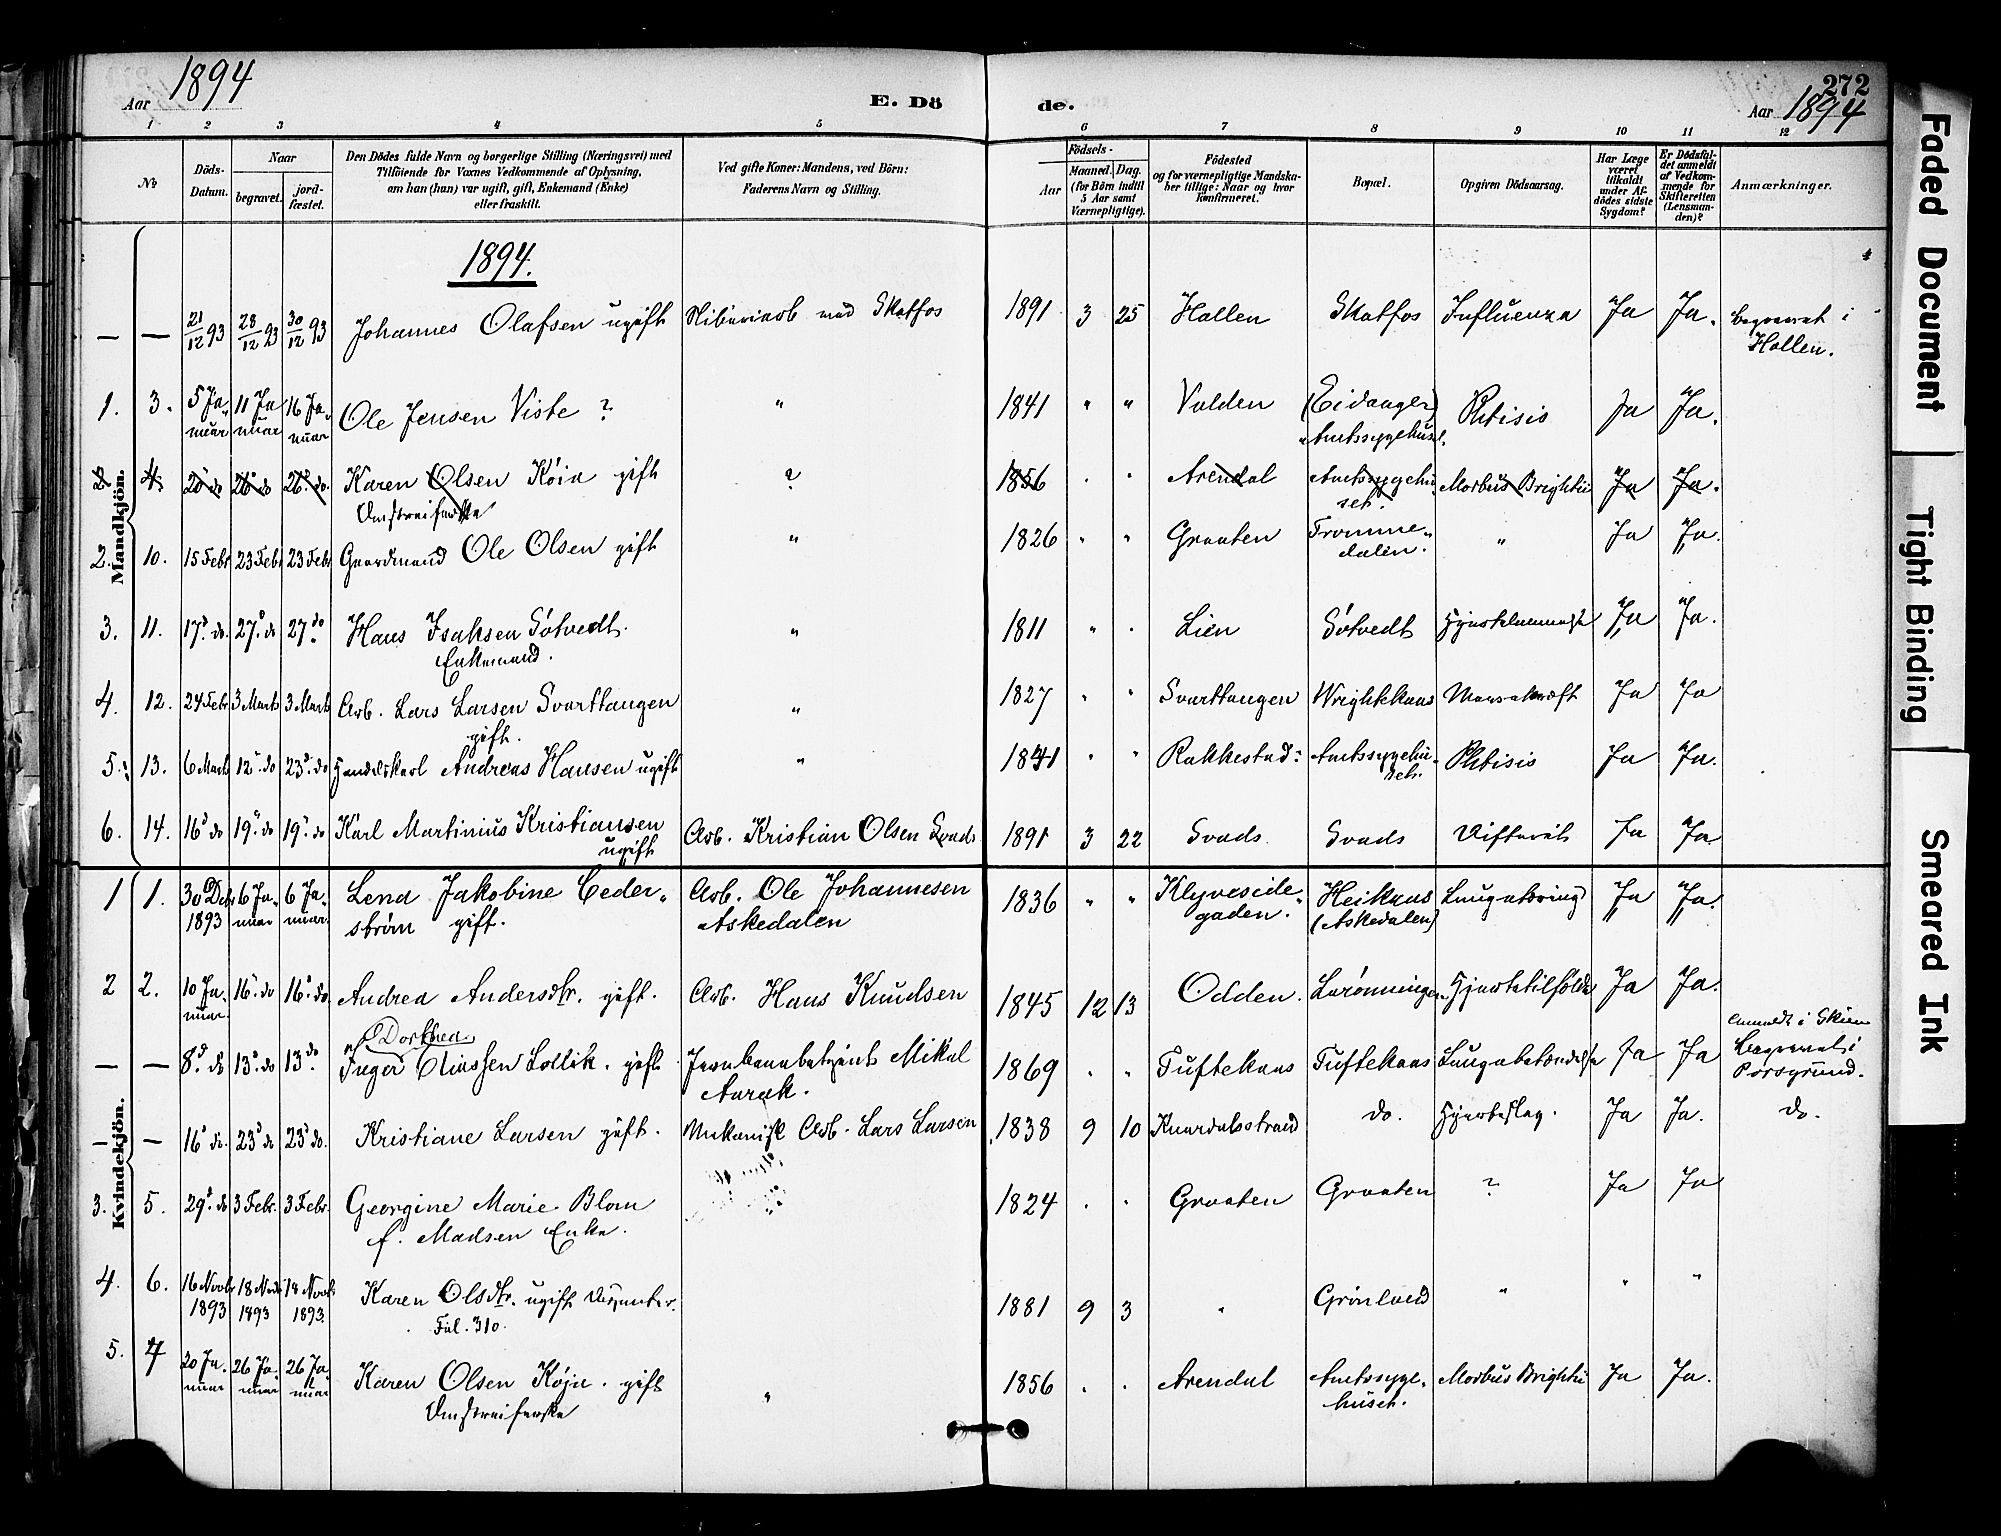 Aar 1894
E. Dö
de.
272
Aar 1894
1 2 3 4 5 6 7 8 9 10 11 12
No
Döds-Datum.
Naar
begravet.
jord-fæstet.
Den Dödes fulde Navn og borgerlige Stilling (Næringsvei) med
Tilföiende for Voxnes Vedkommende af Oplysning,
om han (hun) var ugift, gift, Enkemand (Enke)
eller fraskilt.
Ved gifte Koner: Mandens, ved Börn:
Faderens Navn og Stilling.
Födsels-
Aar
Maaned. Dag.
(for Börn indtil
5 Aar samt
Værnepligtige).
Födested
og for værnepligtige Mandska-
ber tillige: Naar og hvor
konfirmeret.
Bopæl.
Opgiven Dödsaarsag.
Har Læge
været
tilkaldt
under Af-
dödes sidste
Sygdom?
Er Dödsfal-
det anmeldt
af Vedkom-
mende for
Skifteretten
(Lensman-
den)?
Anmærkninger.
Mandkjön.
1894.
— — 21/12 93 28/12 93 30/12 93 Johannes Olafsen ugift Skotfos 1891 3 25 Hollen Skotfos Influenza Ja Ja. begravet i
Hollen.
1. 3. 5 Ja- 11 Ja 16 Ja- Ole Jensen Viste ? " 1841 " " Valden (Eidanger) Phtisis Ja Ja.
nuar nuar nuar Amtssygehuset.
2 4. 20 do 26 do 26 do. Karen Olsen Köia gift ? 1856 Arendal Amtssygehu- Morbus Brightii Ja Ja.
Omstreiferske set.
2. 10. 15 Febr 23 Febr 23 Febr Gaardmand Ole Olsen gift " 1826 " " Graaten Fromme- " Ja Ja.
dalen.
3. 11. 17 do. 27 do 27 do Hans Isaksen Sötvedt. " 1811 " " Lien Sötvedt Ja Ja.
Enkemand.
4. 12. 24 Febr 3 Marts 3 Marts Arb. Lars Larsen Svarttangen " 1827 " " Svarttangen Wrightekaas Ja Ja
gift.
5. 13. 6 Marts 12 do 23 do Handelskarl Andreas Hansen ugift " 1841 " " Rakkestad Amtssygehu- Phtisis Ja Ja.
set.
6. 14. 16 do 19 do 19 do Karl Martinius Kristiansen Arb. Kristian Olsen Svads 1891 3 22 Svads Svads Difterit Ja Ja.
ugift
Kvindekjön.
1 1. 30 Debr 6 Ja- 6 Ja- Lena Jakobine Ceder- Arb. Ole Johannesen 1836 " " Klyveseide- Heikaas Lungetæring Ja Ja.
1893 nuar nuar. ström gift. Askedalen gaden. (Askedalen)
2 2. 10 Ja- 16 do 16 do. Andrea Andersdtr. gift. Arb. Hans Knudsen 1845 12 13 Odden. Lurönningen Hjertetilfölde Ja Ja.
nuar. anmeldt i Skien
Dorthea
— — 8 do 13 do 13 do Inger Eliassen gift. Jernbanebetjent Mikal 1869 " " Tuftekaas Tuftekaas Lungebetændelse Ja Ja begravet i
Aarak. Porsgrund.
— — 16 do. 23 do 23 do. Kristiane Larsen gift. Mekanisk Arb. Lars Larsen 1838 9 10 Knardalsstrand do. Hjerteslag. Ja Ja. do.
3. 5. 29 do 3 Febr. 3 Febr. Georgine Marie Blom 1824 Graaten Graaten ? Ja Ja
f. Madsen Enke.
4. 6. 16 Novbr 18 Novbr 18 Novbr Karen Olsdtr. ugift 1881 9 3 " Grönlund " " "
1893 1893 1893. Fol. 310.
5. 7 20 Ja- 26 Ja- 26 Ja- Karen Olsen Köja. gift " 1856 Arendal Amtssyge- Morbus Brightii Ja Ja.
nuar nuar nuar Omstreiferske huset.
Faded Document
Tight Binding
Smeared Ink